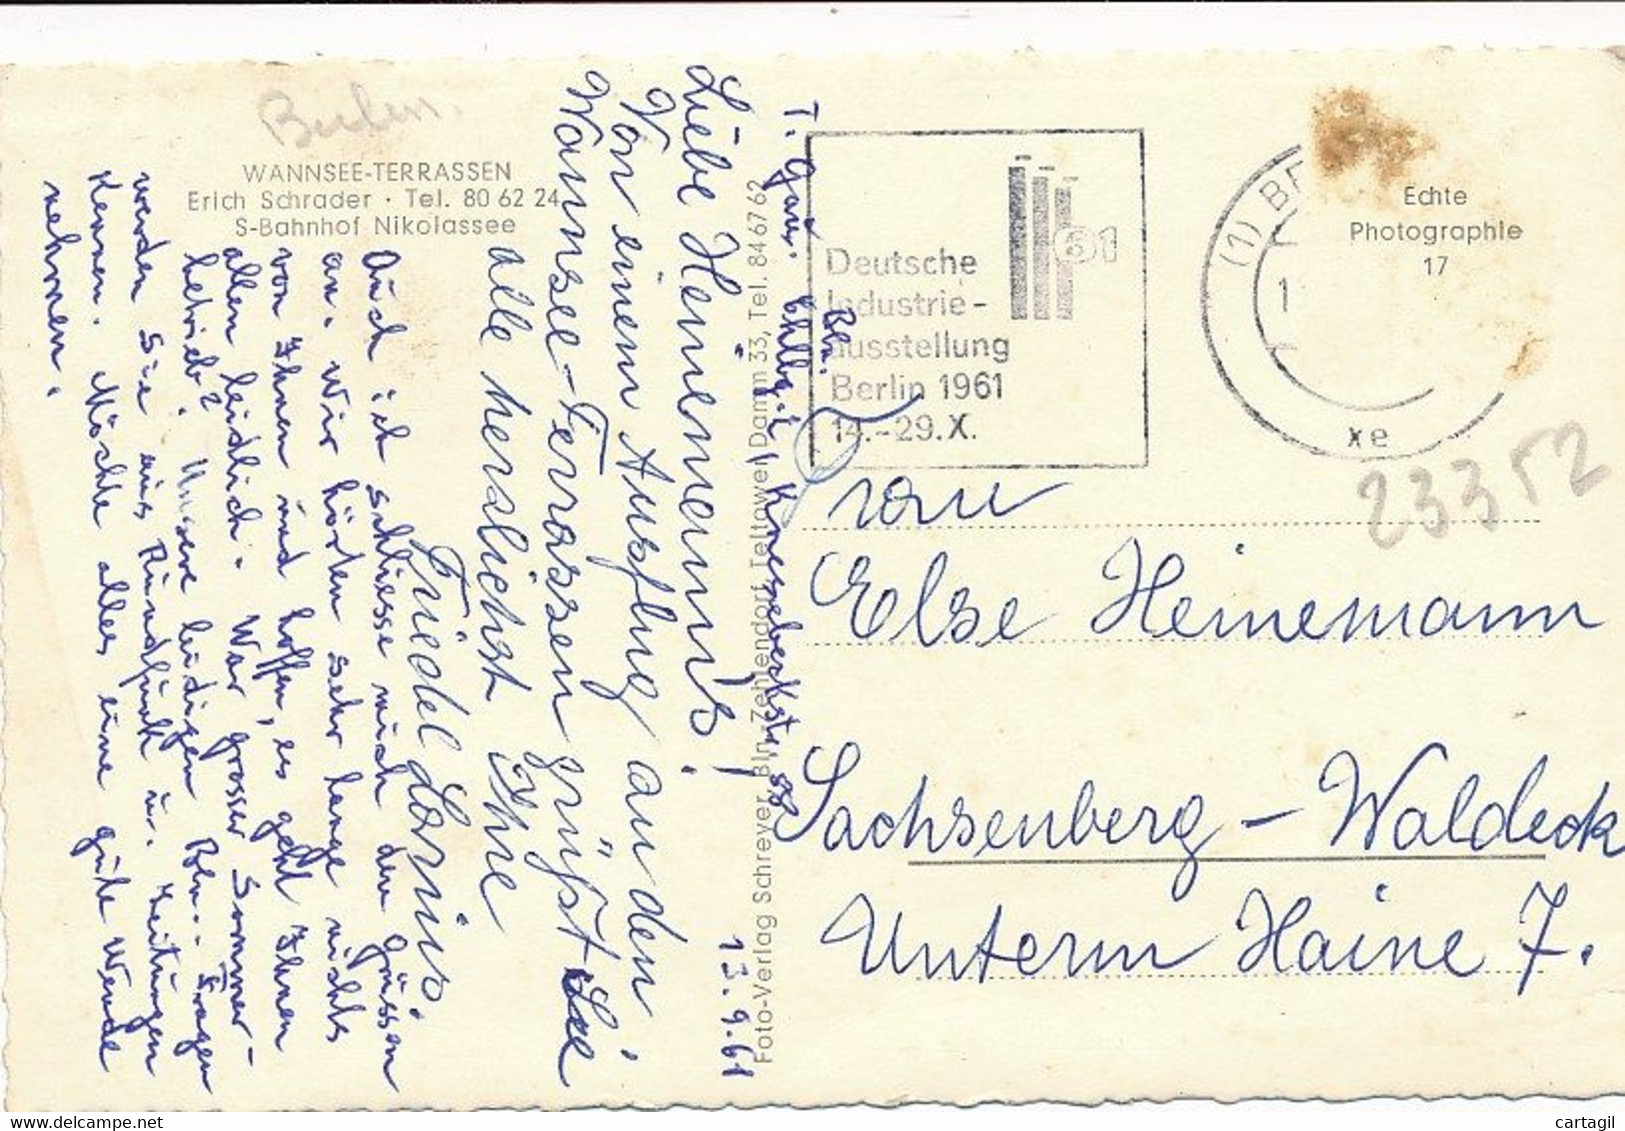 Berlin.
WANNSEE-TERRASSEN
Erich Schrader · Tel. 80 62 24
S-Bahnhof Nikolassee
T. Bln. Knesebeckstr. 88
13.9.61
Liebe Heinemanns!
Von einem Ausflug an den
Wannsee-Terrassen grüsst Sie
alle herzlichst Ihre
Friedel Lorius.
Auch ich schliesse mich den Grüssen
an. Wir hörten sehr lange nichts
von Ihnen und hoffen, es geht Ihnen
allen leidlich. War grosser Sommer-
betrieb? Unsere hiesigen Bln. Fragen
werden Sie aus Rundfunk u. Zeitungen
kennen. Möchte alles eine gute Wende
nehmen.
Foto-Verlag Schreyer, Bln.-Zehlendorf, Teltower Damm 33, Tel. 84 67 62
Deutsche
Industrie-
ausstellung
Berlin 1961
14.-29.X.
61
(1) BE
1
xe
Echte
Photographie
17
23352
Frau
Else Heinemann
Sachsenberg - Waldeck
Unterm Haine 7.
www.delcampe.net
cartagil